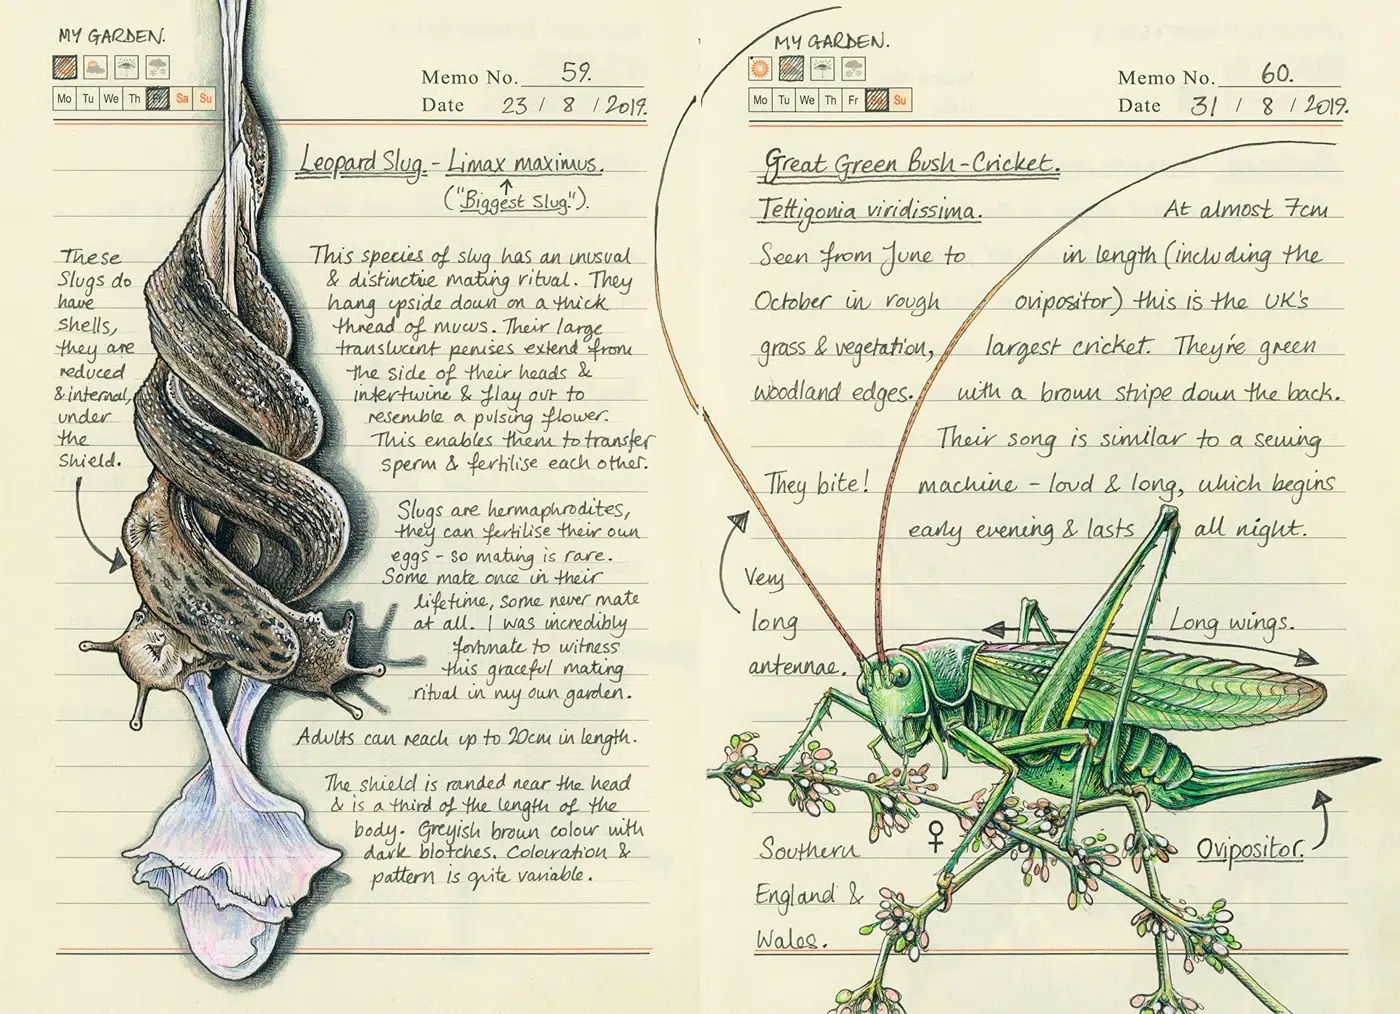 MY GARDEN.
Mo Tu We Th Sa Su
Memo No. 59.
Date 23 / 8 / 2019.
Leopard Slug. - Limax maximus.
("Biggest Slug").
These
Slugs do
have
shells,
they are
reduced
& internal,
under
the
shield.
This species of slug has an unusual
& distinctive mating ritual. They
hang upside down on a thick
thread of mucus. Their large
translucent penises extend from
the side of their heads &
intertwine & flay out to
resemble a pulsing flower.
This enables them to transfer
sperm & fertilise each other.
Slugs are hermaphrodites,
they can fertilise their own
eggs - so mating is rare.
Some mate once in their
lifetime, some never mate
at all. I was incredibly
fortunate to witness
this graceful mating
ritual in my own garden.
Adults can reach up to 20cm in length.
The shield is rounded near the head
& is a third of the length of the
body. Greyish brown colour with
dark blotches. Colouration &
pattern is quite variable.
MY GARDEN.
Mo Tu We Th Fr Su
Memo No. 60.
Date 31 / 8 / 2019.
Great Green Bush-Cricket.
Tettigonia viridissima.
Seen from June to
October in rough
grass & vegetation,
woodland edges.
At almost 7cm
in length (including the
ovipositor) this is the UK's
largest cricket. They're green
with a brown stripe down the back.
Their song is similar to a sewing
machine - loud & long, which begins
early evening & lasts all night.
They bite!
Very
long
antennae.
Long wings.
♀
Ovipositor.
Southern
England &
Wales.